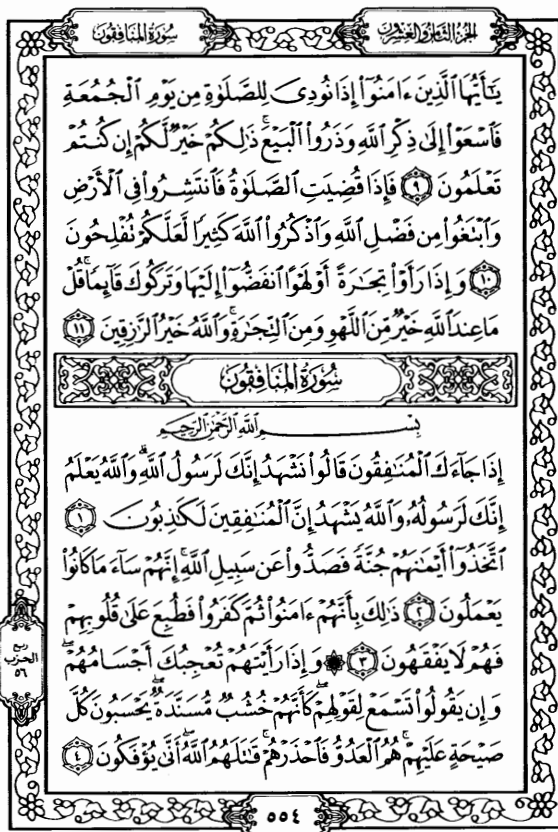 الجزء الثامن والعشرون
سورة المنافقون
يَٰٓأَيُّهَا ٱلَّذِينَ ءَامَنُوٓا۟ إِذَا نُودِىَ لِلصَّلَوٰةِ مِن يَوْمِ ٱلْجُمُعَةِ
فَٱسْعَوْا۟ إِلَىٰ ذِكْرِ ٱللَّهِ وَذَرُوا۟ ٱلْبَيْعَ ۚ ذَٰلِكُمْ خَيْرٌ لَّكُمْ إِن كُنتُمْ
تَعْلَمُونَ ٩ فَإِذَا قُضِيَتِ ٱلصَّلَوٰةُ فَٱنتَشِرُوا۟ فِى ٱلْأَرْضِ
وَٱبْتَغُوا۟ مِن فَضْلِ ٱللَّهِ وَٱذْكُرُوا۟ ٱللَّهَ كَثِيرًا لَّعَلَّكُمْ تُفْلِحُونَ
١٠ وَإِذَا رَأَوْا۟ تِجَٰرَةً أَوْ لَهْوًا ٱنفَضُّوٓا۟ إِلَيْهَا وَتَرَكُوكَ قَآئِمًا ۚ قُلْ
مَا عِندَ ٱللَّهِ خَيْرٌ مِّنَ ٱللَّهْوِ وَمِنَ ٱلتِّجَٰرَةِ ۚ وَٱللَّهُ خَيْرُ ٱلرَّٰزِقِينَ ١١
سُورَةُ المُنَافِقُونَ
بِسْمِ ٱللَّهِ ٱلرَّحْمَٰنِ ٱلرَّحِيمِ
إِذَا جَآءَكَ ٱلْمُنَٰفِقُونَ قَالُوا۟ نَشْهَدُ إِنَّكَ لَرَسُولُ ٱللَّهِ ۗ وَٱللَّهُ يَعْلَمُ
إِنَّكَ لَرَسُولُهُۥ وَٱللَّهُ يَشْهَدُ إِنَّ ٱلْمُنَٰفِقِينَ لَكَٰذِبُونَ ١
ٱتَّخَذُوٓا۟ أَيْمَٰنَهُمْ جُنَّةً فَصَدُّوا۟ عَن سَبِيلِ ٱللَّهِ ۚ إِنَّهُمْ سَآءَ مَا كَانُوا۟
يَعْمَلُونَ ٢ ذَٰلِكَ بِأَنَّهُمْ ءَامَنُوا۟ ثُمَّ كَفَرُوا۟ فَطُبِعَ عَلَىٰ قُلُوبِهِمْ
فَهُمْ لَا يَفْقَهُونَ ٣ ۞ وَإِذَا رَأَيْتَهُمْ تُعْجِبُكَ أَجْسَامُهُمْ ۖ
وَإِن يَقُولُوا۟ تَسْمَعْ لِقَوْلِهِمْ ۖ كَأَنَّهُمْ خُشُبٌ مُّسَنَّدَةٌ ۖ يَحْسَبُونَ كُلَّ
صَيْحَةٍ عَلَيْهِمْ ۚ هُمُ ٱلْعَدُوُّ فَٱحْذَرْهُمْ ۚ قَٰتَلَهُمُ ٱللَّهُ ۖ أَنَّىٰ يُؤْفَكُونَ ٤
ربع
الحزب
٥٦
٥٥٤